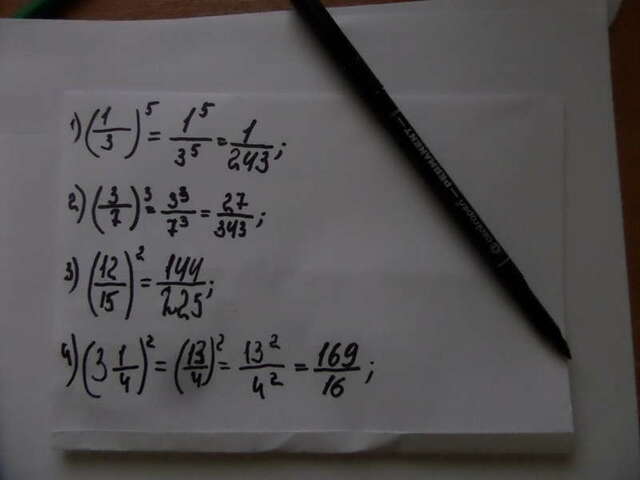 1) (1/3)^5 = 1^5/3^5 = 1/243;
2) (3/7)^3 = 3^3/7^3 = 27/343;
3) (12/15)^2 = 144/225;
4) (3 1/4)^2 = (13/4)^2 = 13^2/4^2 = 169/16;
PERMANENT